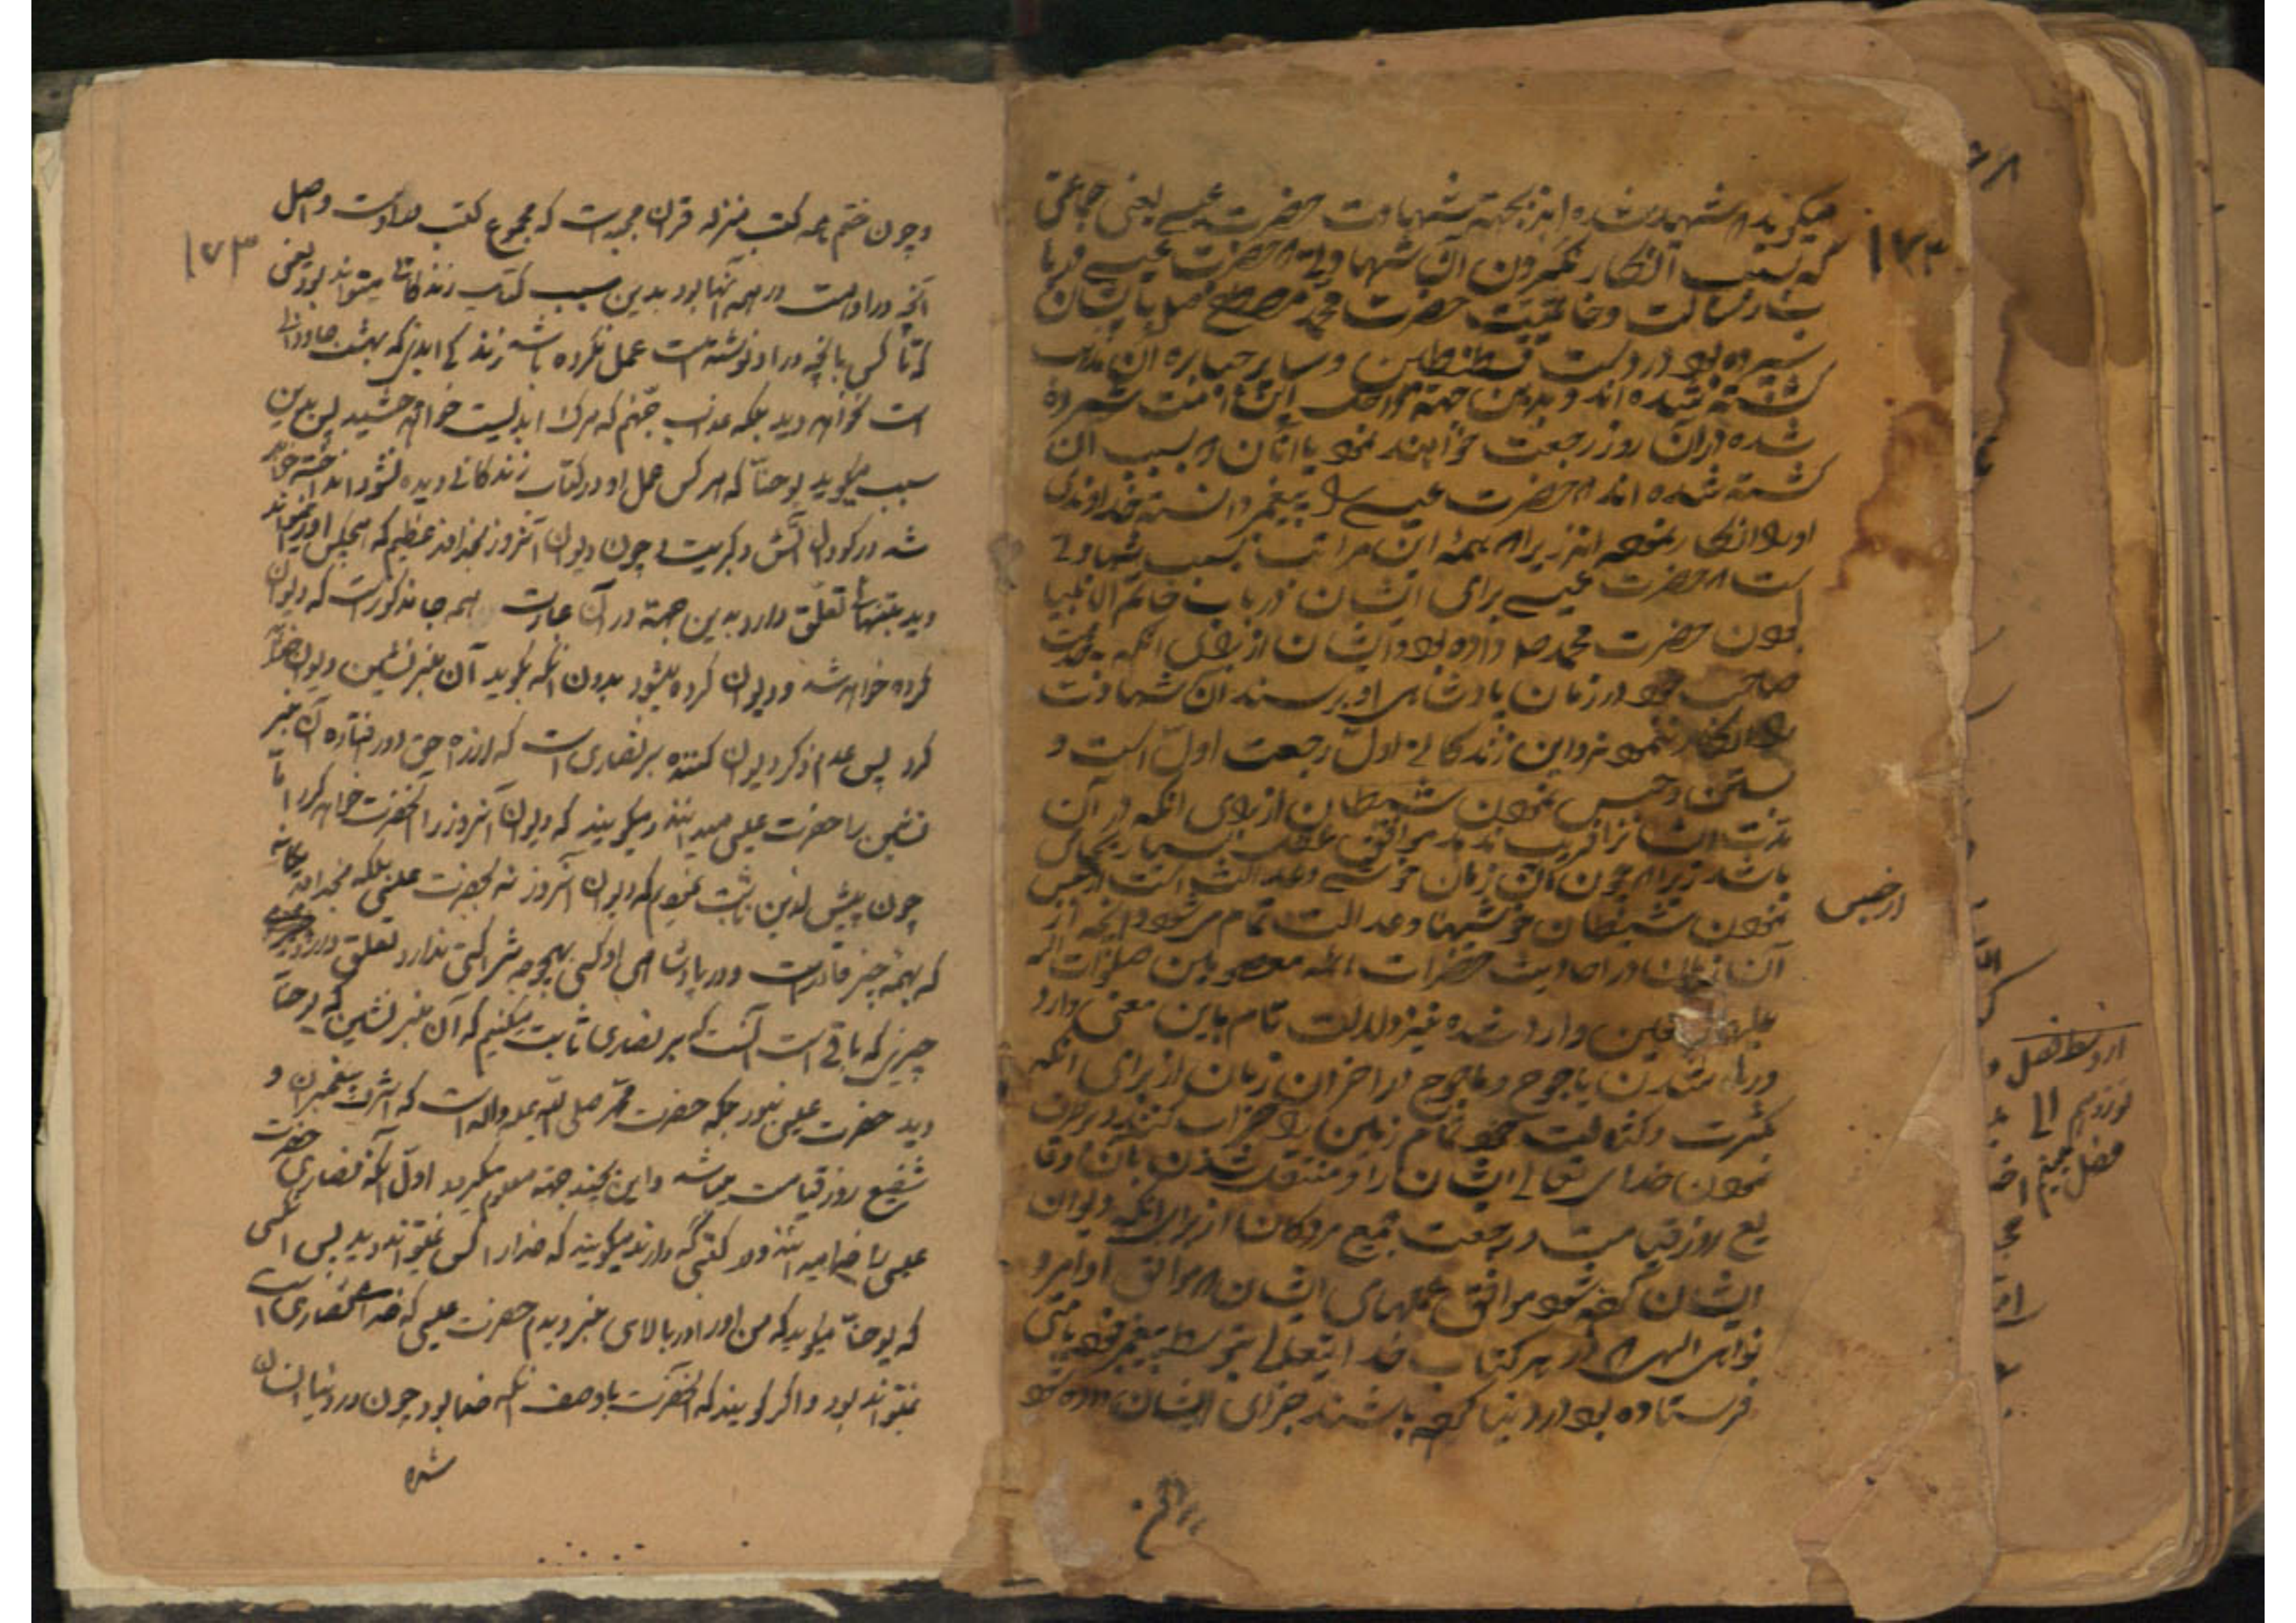 میگوید که شهید شده اند بجهة شهادت حضرت عیسی یعنی جماعتی
که بسبب انکار نکردن آن شهادتی که حضرت عیسی در با
ب رسالت وخاتمیت حضرت محمد مصطفی صلی بایشان
سپرده بود در دست قسطنطین وسایر جبابره آن مذهب
کشته شده اند و بدین جهة
شده در آن روز رجعت خواهند نمود با آنان که بسبب آن
کشته شده اند که حضرت عیسی را پیغمبر دانسته خداوندی
او را انکار نموده اند زیرا که همهٔ این مراتب بسبب شهادتی
است که حضرت عیسی برای ایشان در باب خاتم الانبیا
بودن حضرت محمد صلی داده بود وایشان از برای آنکه بخدمت
صاحب خود در زمان پادشاهی او برسند آن شهادت
را انکار ننمودند واین زندگانی اول رجعت اول است و
بستن وحبس نمودن شیطان از برای آنکه در آن
مدت ایشانرا فریب ندهد موافق عقل بسیار بجای
باشد زیرا که چون آن زمان خوشی وعدالت است از حبس
نمودن شیطان خوشیها وعدالت تمام میشود وآنچه از
آن زمان در احادیث حضرات ائمه معصومین صلوات الله
علیهم اجمعین وارد شده نیز دلالت تمام باین معنی دارد
ورها شدن یاجوج وماجوج در آخر آن زمان از برای آنکه
بکثرت وکثافت خود تمام زمین را خراب کنند و برطرف
نمودن خدای تعالی ایشان را ومنتقل شدن بآن وقا
یع روز قیامت ورجعت جمیع مردگان از برای آنکه دیوان
ایشان کرده شود موافق عملهای ایشان که موافق اوامر و
نواهی الهی که در هر کتاب خدایتعالی بتوسط پیغمبر خود بامتی
فرستاده بود در دنیا کرده باشند جزای ایشان داده شود
از حبس
۱۷۳
وچون ختم همه کتب منزله قرآن مجید است که مجموع کتب در اوست واصل
آنچه در اوست در همهٔ آنها بود بدین سبب کتاب زندگانی میتواند بود یعنی
که تا کسی بآنچه در او نوشته است عمل نکرده باشد زندگی ابدی که بهشت جاودانی
است نخواهد دید بلکه عذاب جهنم که مرگ ابدیست خواهد چشید پس بدین
سبب میگوید یوحنّا که هر کس عمل او در کتاب زندگانی دیده نشود انداخته خواهد
شد در گودال آتش وکبریت و چون دیوان آنروز بخداوند عظیم که هیچکس او را نمیتواند
دید بتنهائی تعلّق دارد بدین جهة در آن عبارت همه جا مذکور است که دیوان
کرده خواهد شد ودیوان کرده میشود بدون آنکه بگوید آن منبر نشین دیوان خواهد
کرد پس عدم ذکر دیوان کننده بر نصاری است که از راه حق دور افتاده آن منبر
نشین را حضرت عیسی میدانند ومیگویند که دیوان آنروز را آنحضرت خواهد کرد امّا
چون پیش ازین ثابت نمودیم که دیوان آنروز نه بحضرت عیسی بلکه بخداوند یگانه
که بهمه چیز قادر است و در پادشاهی او کسی بهیچوجه شراکتی ندارد تعلق دارد
چیزی که باقی است آنست که بر نصاری ثابت میکنیم که آن منبر نشین که یوحنّا
دید حضرت عیسی نبود بلکه حضرت محمّد صلی الله علیه واله است که اشرف پیغمبران و
شفیع روز قیامت میباشد واین بچند جهة معلوم میگردد اوّل آنکه نصاری حضرت
عیسی را خدا میدانند و میگویند که خدا را کسی نمیتواند دید پس آنکسی
که یوحنّا میگوید که من او را در بالای منبر دیدم حضرت عیسی که خدای نصاری است
نمیتواند بود واگر گویند که آنحضرت با وصف آنکه خدا بود چون در دنیا انسان
شده
۱۷۳